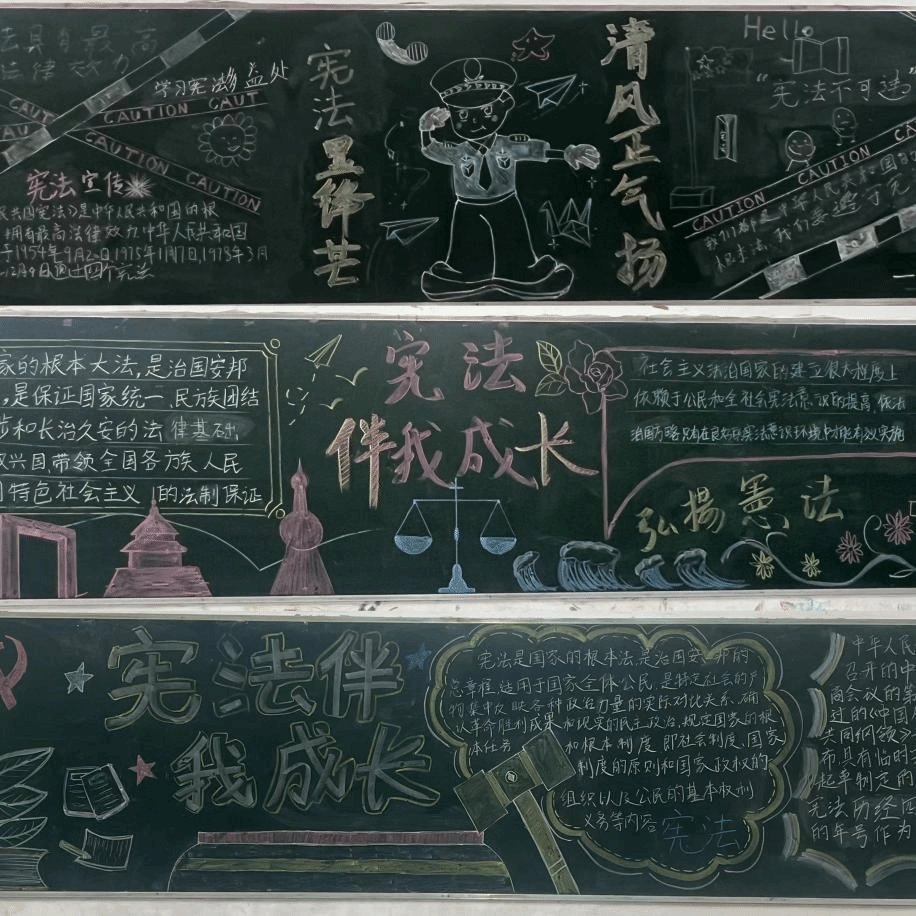 法具有最高
法律效力
学习宪法益处
CAUTION CAUT
CAUTION
CAUTION
宪法宣传
民共和国宪法》是中华人民共和国的根
拥有最高法律效力中华人民共和国
于1954年9月20日,1975年1月17日,1978年3月
12月4日通过四个宪法
宪法显锋芒
清风正气扬
Hello
"宪法不可违"
CAUTION CAUTION CAU
CAUTION
我们都是中华人民共和国的
根本法,我们要遵守宪
家的根本大法,是治国安邦
,是保证国家统一 民族团结
步和长治久安的法律基础,
兴国带领全国各族人民
国特色社会主义 的法制保证
宪法
伴我成长
社会主义法治国家的建立很大程度上
依赖于公民和全社会宪法意识的提高,依法
治国方略只有在良好的宪法意识环境中才能有效实施
弘揚憲法
宪法伴
我成长
宪法是国家的根本法,是治国安邦的
总章程,适用于国家全体公民,是特定社会的产
物集中反映各种政治力量的实际对比关系,确
认革命胜利成果和现实的民主政治,规定国家的根
本任务 和根本制度 即社会制度、国家
制度的原则和国家政权的
组织以及公民的基本权利
义务等内容
宪法
中华人民
召开的中
商会议的第
过的《中国
共同纲领》
布具有临时
起草制定的
宪法历经四
的年号作为